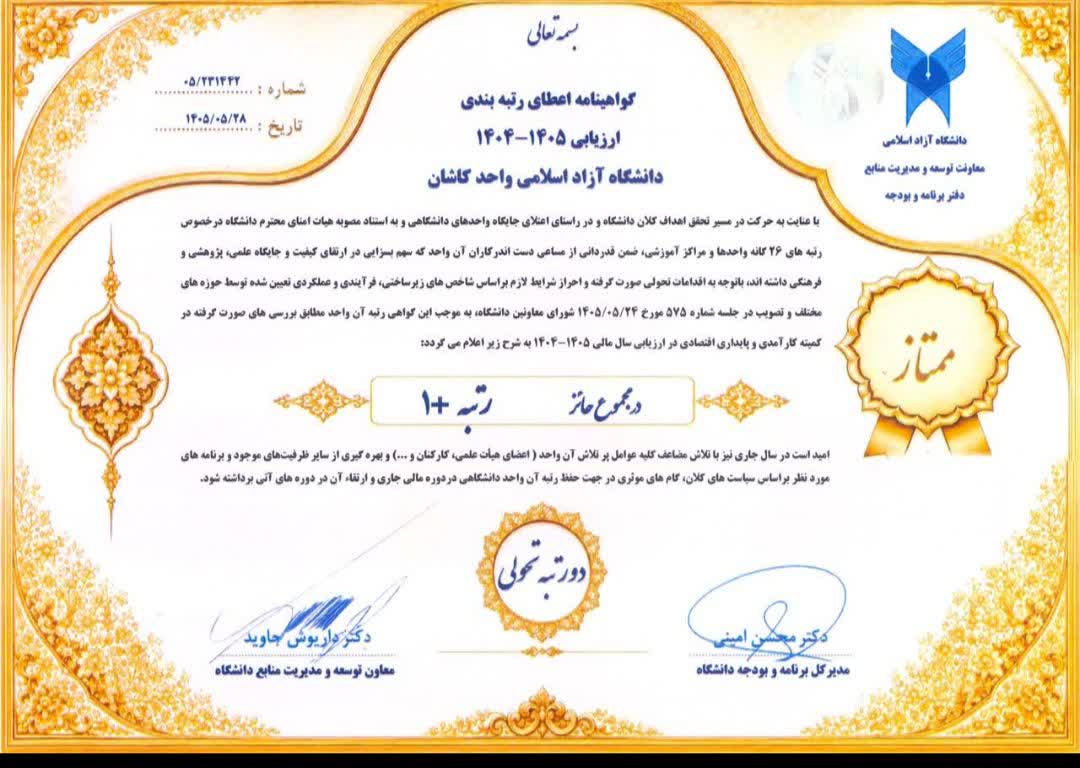 بسمه تعالی
شماره : ۰۵/۲۳۱۴۴۲
تاریخ : ۱۴۰۵/۰۵/۲۸
دانشگاه آزاد اسلامی
معاونت توسعه و مدیریت منابع
دفتر برنامه و بودجه
گواهینامه اعطای رتبه بندی
ارزیابی ۱۴۰۵-۱۴۰۴
دانشگاه آزاد اسلامی واحد کاشان
با عنایت به حرکت در مسیر تحقق اهداف کلان دانشگاه و در راستای اعتلای جایگاه واحدهای دانشگاهی و به استناد مصوبه هیات امنای محترم دانشگاه در خصوص
رتبه های ۲۶ گانه واحدها و مراکز آموزشی، ضمن قدردانی از مساعی دست اندرکاران آن واحد که سهم بسزایی در ارتقای کیفیت و جایگاه علمی، پژوهشی و
فرهنگی داشته اند، باتوجه به اقدامات تحولی صورت گرفته و احراز شرایط لازم براساس شاخص های زیرساختی، فرآیندی و عملکردی تعیین شده توسط حوزه های
مختلف و تصویب در جلسه شماره ۵۷۵ مورخ ۱۴۰۵/۰۵/۲۴ شورای معاونین دانشگاه، به موجب این گواهی رتبه آن واحد مطابق بررسی های صورت گرفته در
کمیته کارآمدی و پایداری اقتصادی در ارزیابی سال مالی ۱۴۰۵-۱۴۰۴ به شرح زیر اعلام می گردد:
ممتاز
در مجموع حائز رتبه +۱
امید است در سال جاری نیز با تلاش مضاعف کلیه عوامل پر تلاش آن واحد ( اعضای هیأت علمی، کارکنان و ...) و بهره گیری از سایر ظرفیت‌های موجود و برنامه های
مورد نظر براساس سیاست های کلان، گام های موثری در جهت حفظ رتبه آن واحد دانشگاهی دردوره مالی جاری و ارتقاء آن در دوره های آتی برداشته شود.
دو رتبه تحولی
دکتر محسن امینی
مدیرکل برنامه و بودجه دانشگاه
دکتر داریوش جاوید
معاون توسعه و مدیریت منابع دانشگاه